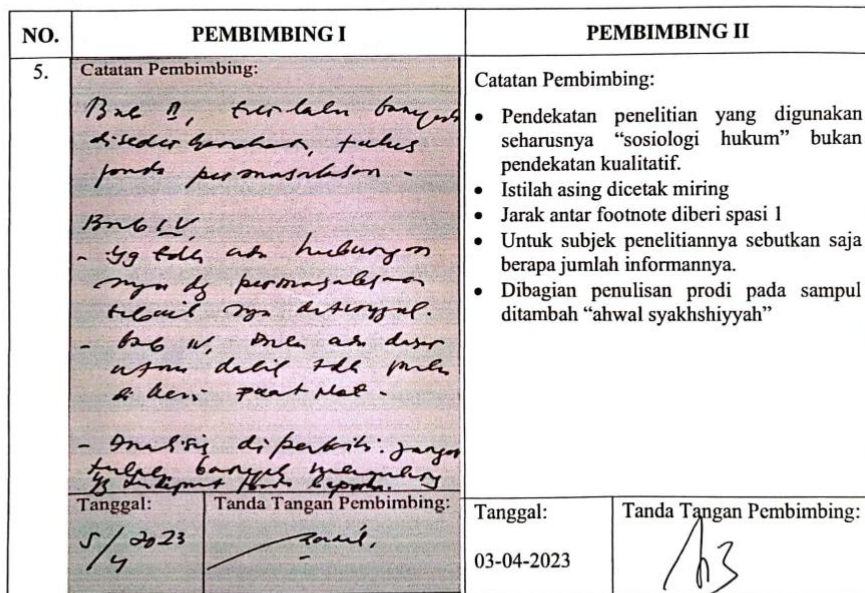 NO.
PEMBIMBING I
PEMBIMBING II
5.
Catatan Pembimbing:
Bab II, terlalu banyak
disederhanakan, fokus
pada permasalahan -
Bab IV,
- yg tdk ada hubungan
nya dg permasalahan
ditinggal.
- bab IV, ada dasar
atau dalil tdk perlu
di beri Foot Not -
- Analisis diperbaiki. jangan
banyak mengulang
yg pada
Tanggal:
5/4 2023
Tanda Tangan Pembimbing:
Catatan Pembimbing:
• Pendekatan penelitian yang digunakan
seharusnya “sosiologi hukum” bukan
pendekatan kualitatif.
• Istilah asing dicetak miring
• Jarak antar footnote diberi spasi 1
• Untuk subjek penelitiannya sebutkan saja
berapa jumlah informannya.
• Dibagian penulisan prodi pada sampul
ditambah “ahwal syakhshiyyah”
Tanggal:
03-04-2023
Tanda Tangan Pembimbing: